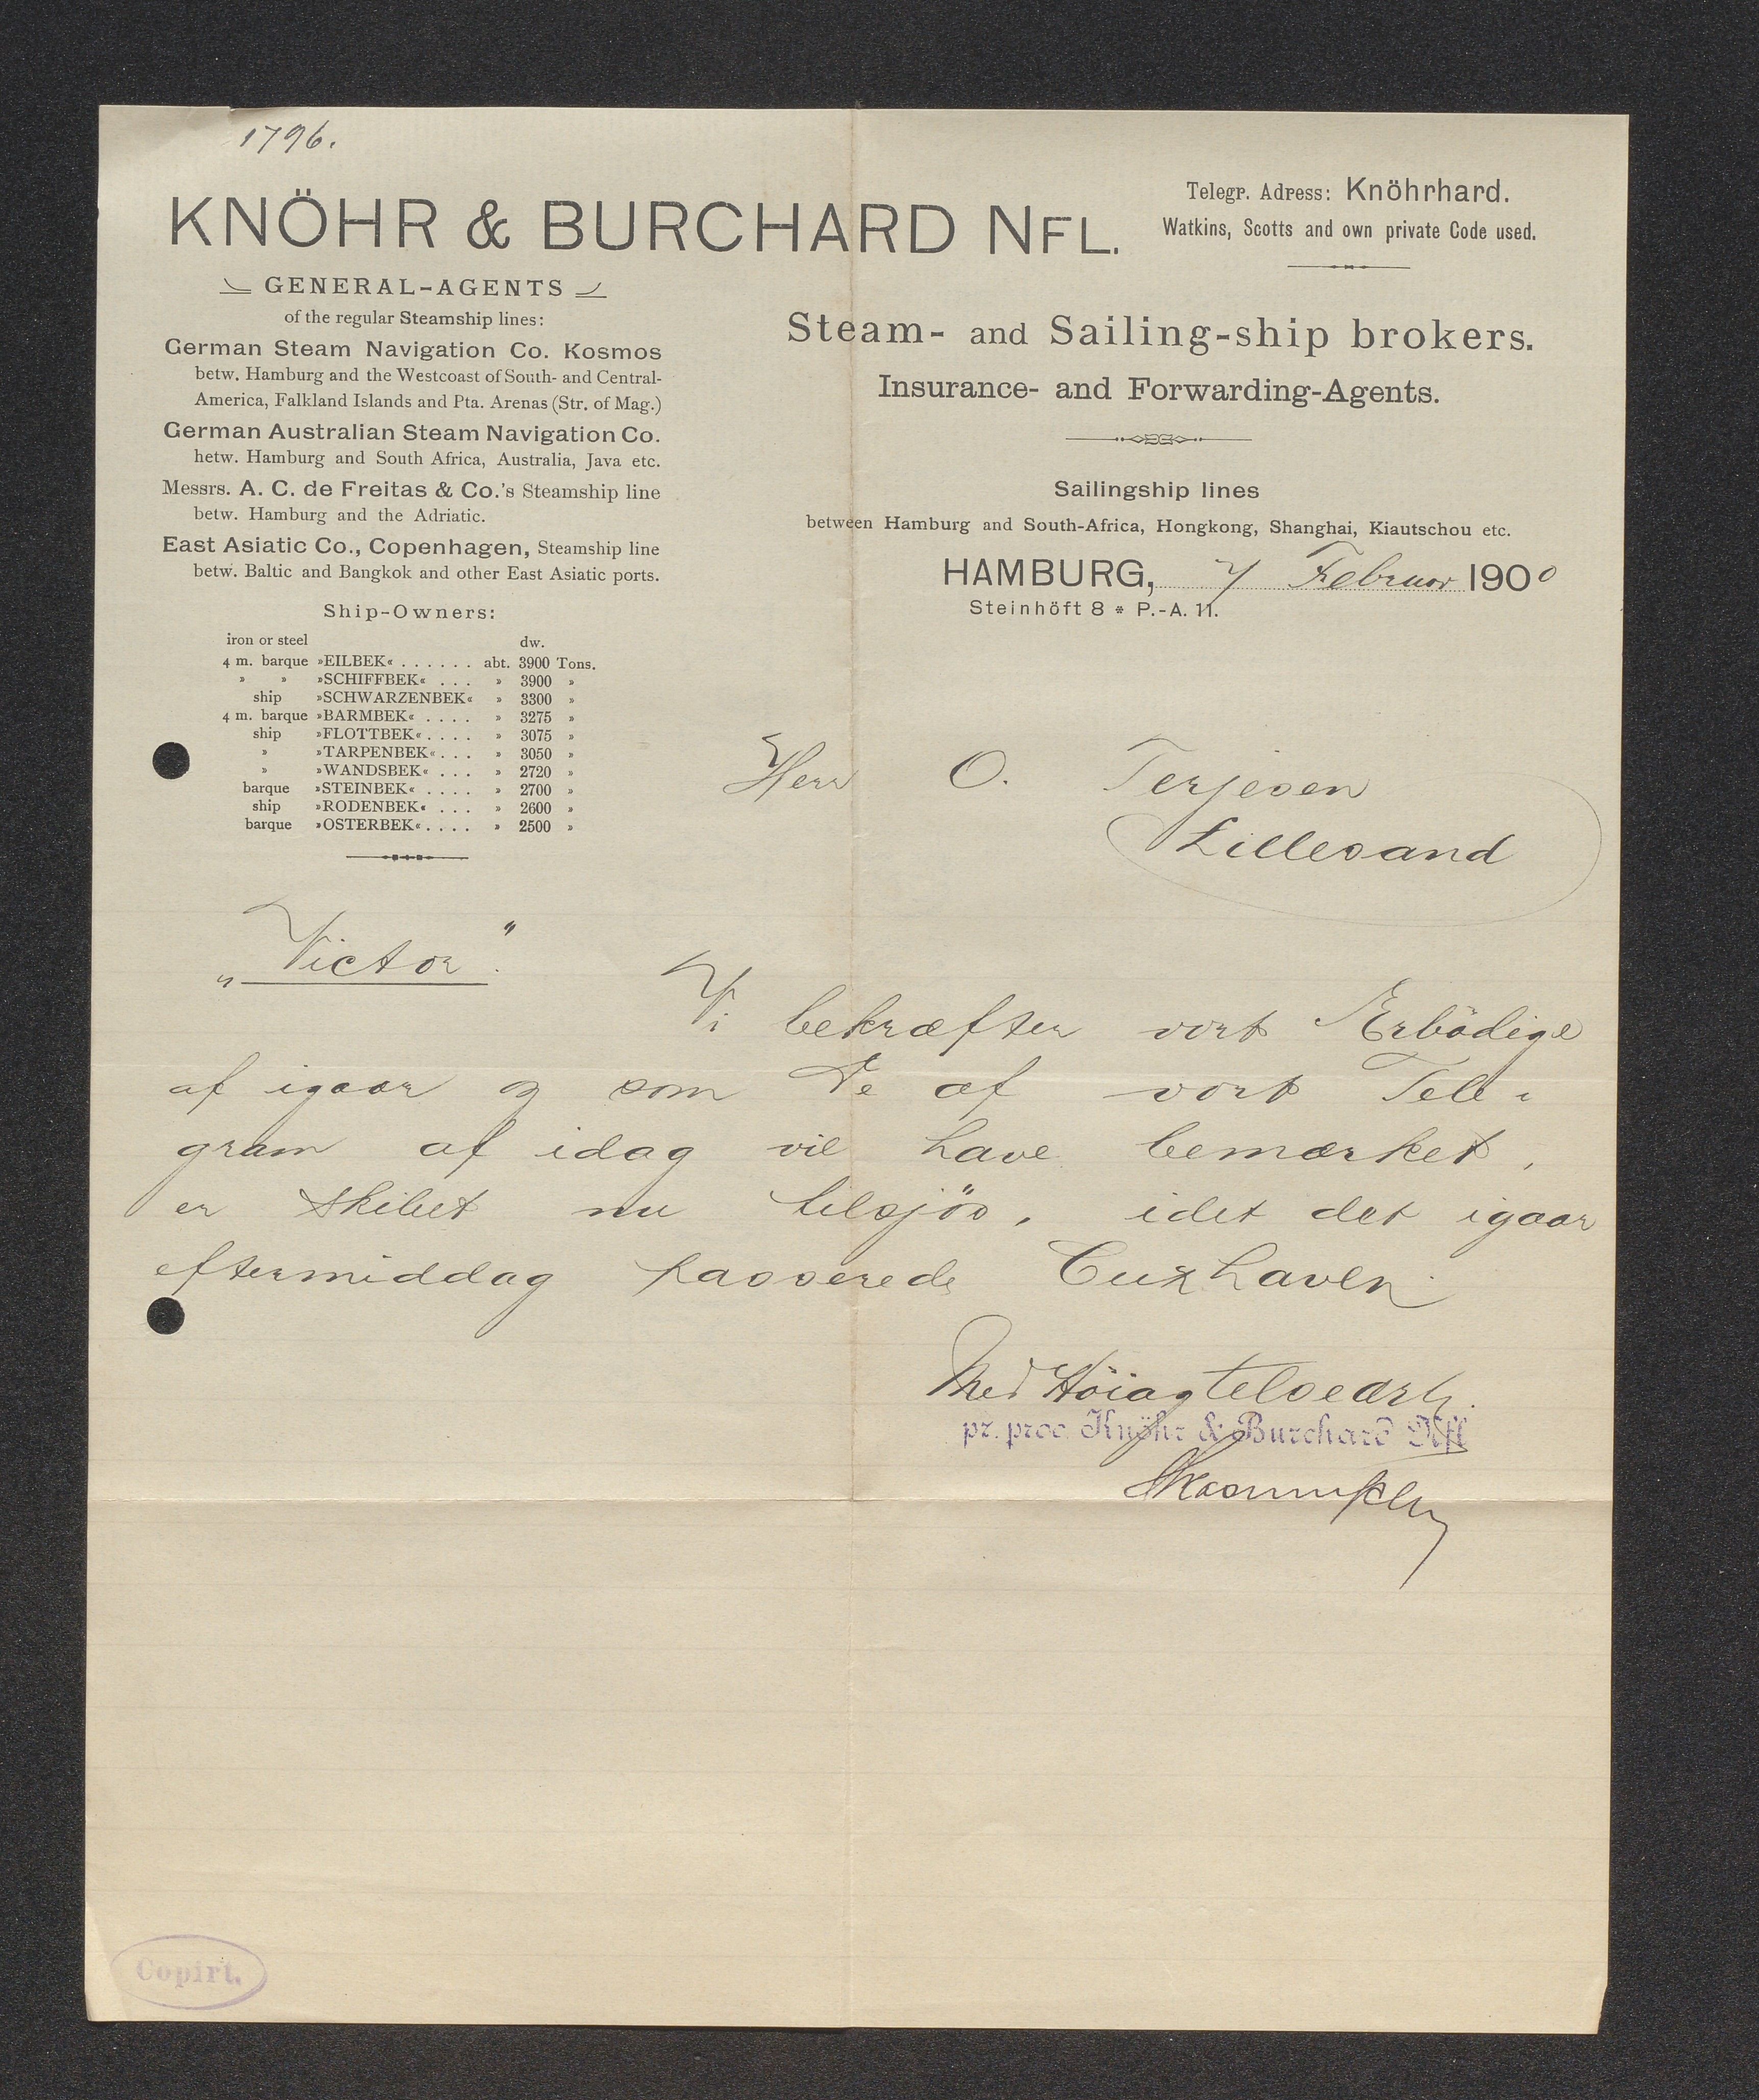 1796.
KNÖHR & BURCHARD NFL.
Telegr. Adress: Knöhrhard.
Watkins, Scotts and own private Code used.
GENERAL-AGENTS
of the regular Steamship lines:
German Steam Navigation Co. Kosmos
betw. Hamburg and the Westcoast of South- and Central-
America, Falkland Islands and Pta. Arenas (Str. of Mag.)
German Australian Steam Navigation Co.
hetw. Hamburg and South Africa, Australia, Java etc.
Messrs. A. C. de Freitas & Co.'s Steamship line
betw. Hamburg and the Adriatic.
East Asiatic Co., Copenhagen, Steamship line
betw. Baltic and Bangkok and other East Asiatic ports.
Ship-Owners:
iron or steel dw.
4 m. barque »EILBEK« . . . . . . abt. 3900 Tons.
» » »SCHIFFBEK« . . . » 3900 »
ship »SCHWARZENBEK« » 3300 »
4 m. barque »BARMBEK« . . . . » 3275 »
ship »FLOTTBEK« . . . . » 3075 »
» »TARPENBEK« . . . » 3050 »
» »WANDSBEK« . . . » 2720 »
barque »STEINBEK« . . . . » 2700 »
ship »RODENBEK« . . . » 2600 »
barque »OSTERBEK« . . . . » 2500 »
Steam- and Sailing-ship brokers.
Insurance- and Forwarding-Agents.
Sailingship lines
between Hamburg and South-Africa, Hongkong, Shanghai, Kiautschou etc.
HAMBURG, 7 Februar 1900
Steinhöft 8 * P.-A. 11.
Herr O. Terjesen
Lillesand
„Victor".
Vi bekræfter vort Erbödige
af igaar og som De af vort Tele-
gram af idag vil have bemærket,
er skibet nu tilsjös, idet det igaar
eftermiddag passerede Cuxhaven.
Med Höiagtelsecrl.
pr. proc. Knöhr & Burchard Nfl
Copirt.